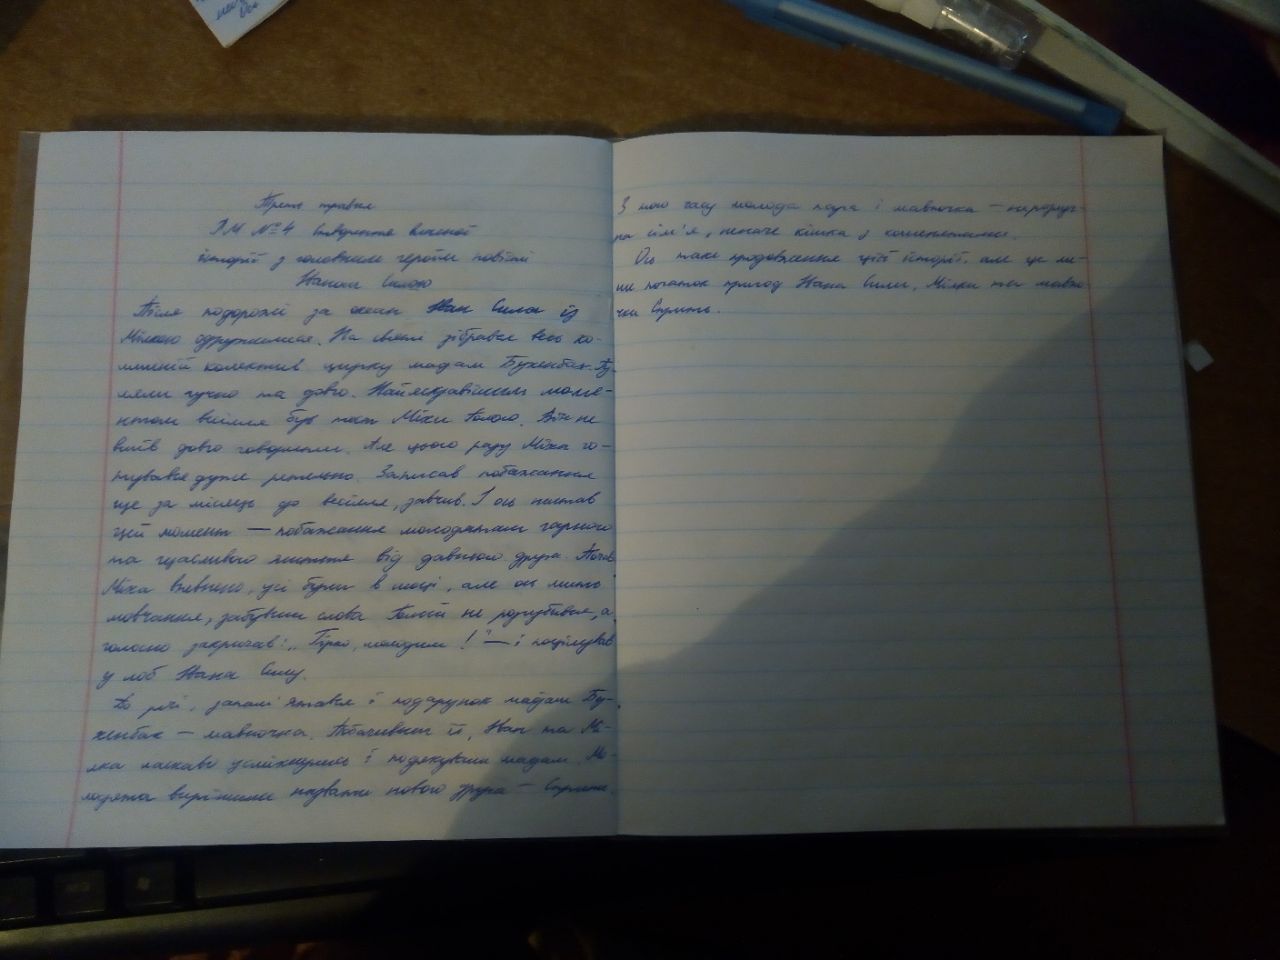 Третє травня
РМ №4 Створення власної
історії з головним героєм повісті
Іваном Силою
Після подорожі за океан Іван Сила із
Мілкою одружилися. На святі зібрався весь ко-
лишній колектив цирку мадам Бухенбах. Гу-
ляли гучно та довго. Найяскравішим моме-
нтом весілля був тост Міхи Голого. Він не
вмів довго говорити. Для цього ряду Міха го-
тувався дуже ретельно. Записав побажання
ще за місяць до весілля, завчив. І ось настав
цей момент — побажання молодятам гарного
та щасливого життя від давнього друга. Почав
Міха впевнено, усі були в
мовчання, забувши слова Голий не розгубився, а
голосно закричав: „Гірко, молодим!" — і поцілував
у лоб Івана Силу.
До речі, запам'ятався і подарунок мадам Бу-
хенбах — мавпочка. Побачивши її, Іван та Мі-
лка ласкаво усміхнулись і подякували мадам. Мо-
лодята вирішили назвати нового друга —
З того часу молода пара і мавпочка — нерозлуч-
на сім'я, неначе кішка з кошенятами.
Ось таке продовження цієї історії, але це ли-
ше початок пригод Івана Сили, Мілки та мавпо-
чки